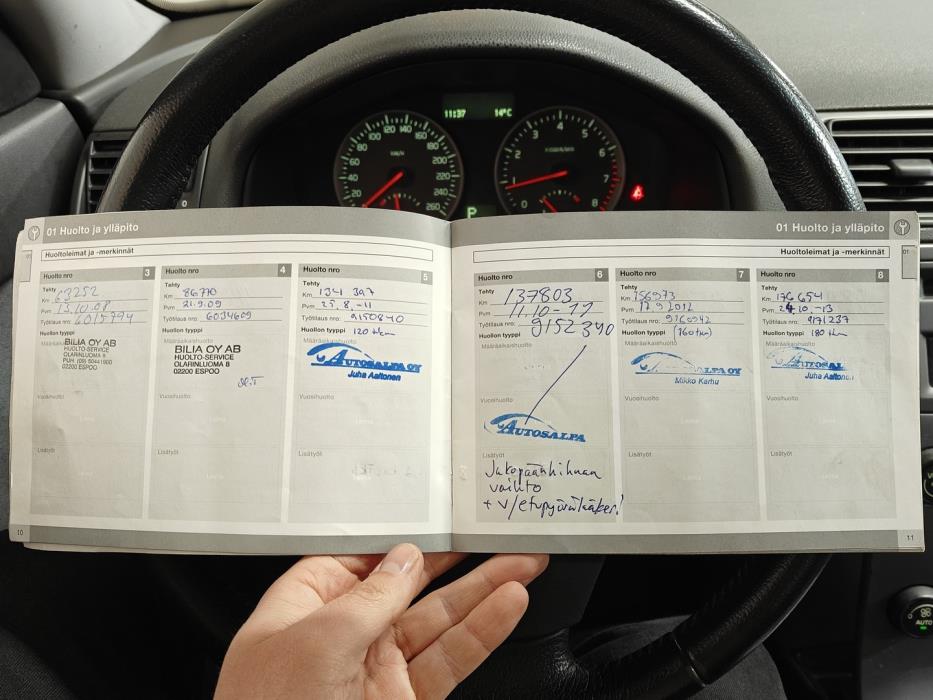 11:37 14°C
100 120 140
80 160
60 180
40 200
220
20 240
260
km/h
3 4 5
2 6
1 7
0 8
P
0
01 Huolto ja ylläpito
Huoltoleimat ja -merkinnät
Huolto nro 3
Tehty
Km 63252
Pvm 15.10.08
Työtilaus nro: 6015794
Huollon tyyppi
Määräaikaishuolto
BILIA OY AB
HUOLTO-SERVICE
OLARINLUOMA 8
PUH. (09) 50441900
02200 ESPOO
Vuosihuolto
Lisätyöt
Huolto nro 4
Tehty
Km 86770
Pvm 21.9.09
Työtilaus nro: 6034609
Huollon tyyppi
Määräaikaishuolto
BILIA OY AB
HUOLTO-SERVICE
OLARINLUOMA 8
02200 ESPOO
Vuosihuolto
Lisätyöt
Huolto nro 5
Tehty
Km 134 397
Pvm 25.8.-11
Työtilaus nro: 9150840
Huollon tyyppi 120 tkm
Määräaikaishuolto
AUTOSALPA OY
Juha Aaltonen
Vuosihuolto
Lisätyöt
10
01 Huolto ja ylläpito
01
Huoltoleimat ja -merkinnät
Huolto nro 6
Tehty
Km 137803
Pvm 11.10-11
Työtilaus nro: 9152390
Huollon tyyppi
Määräaikaishuolto
Vuosihuolto
AUTOSALPA
Lisätyöt
Jakopäänhihnan
vaihto
+ v/etupyöränlaakeri
Huolto nro 7
Tehty
Km 156973
Pvm 17.9.2012
Työtilaus nro:
Huollon tyyppi (160tkm)
Määräaikaishuolto
ALPA OY
Mikko Karhu
Vuosihuolto
Lisätyöt
Huolto nro 8
Tehty
Km 176 654
Pvm 24.10.-13
Työtilaus nro: 9171237
Huollon tyyppi 180 tkm
Määräaikaishuolto
AUTOSAL
Juha Aaltonen
Vuosihuolto
Lisätyöt
11
AUTO